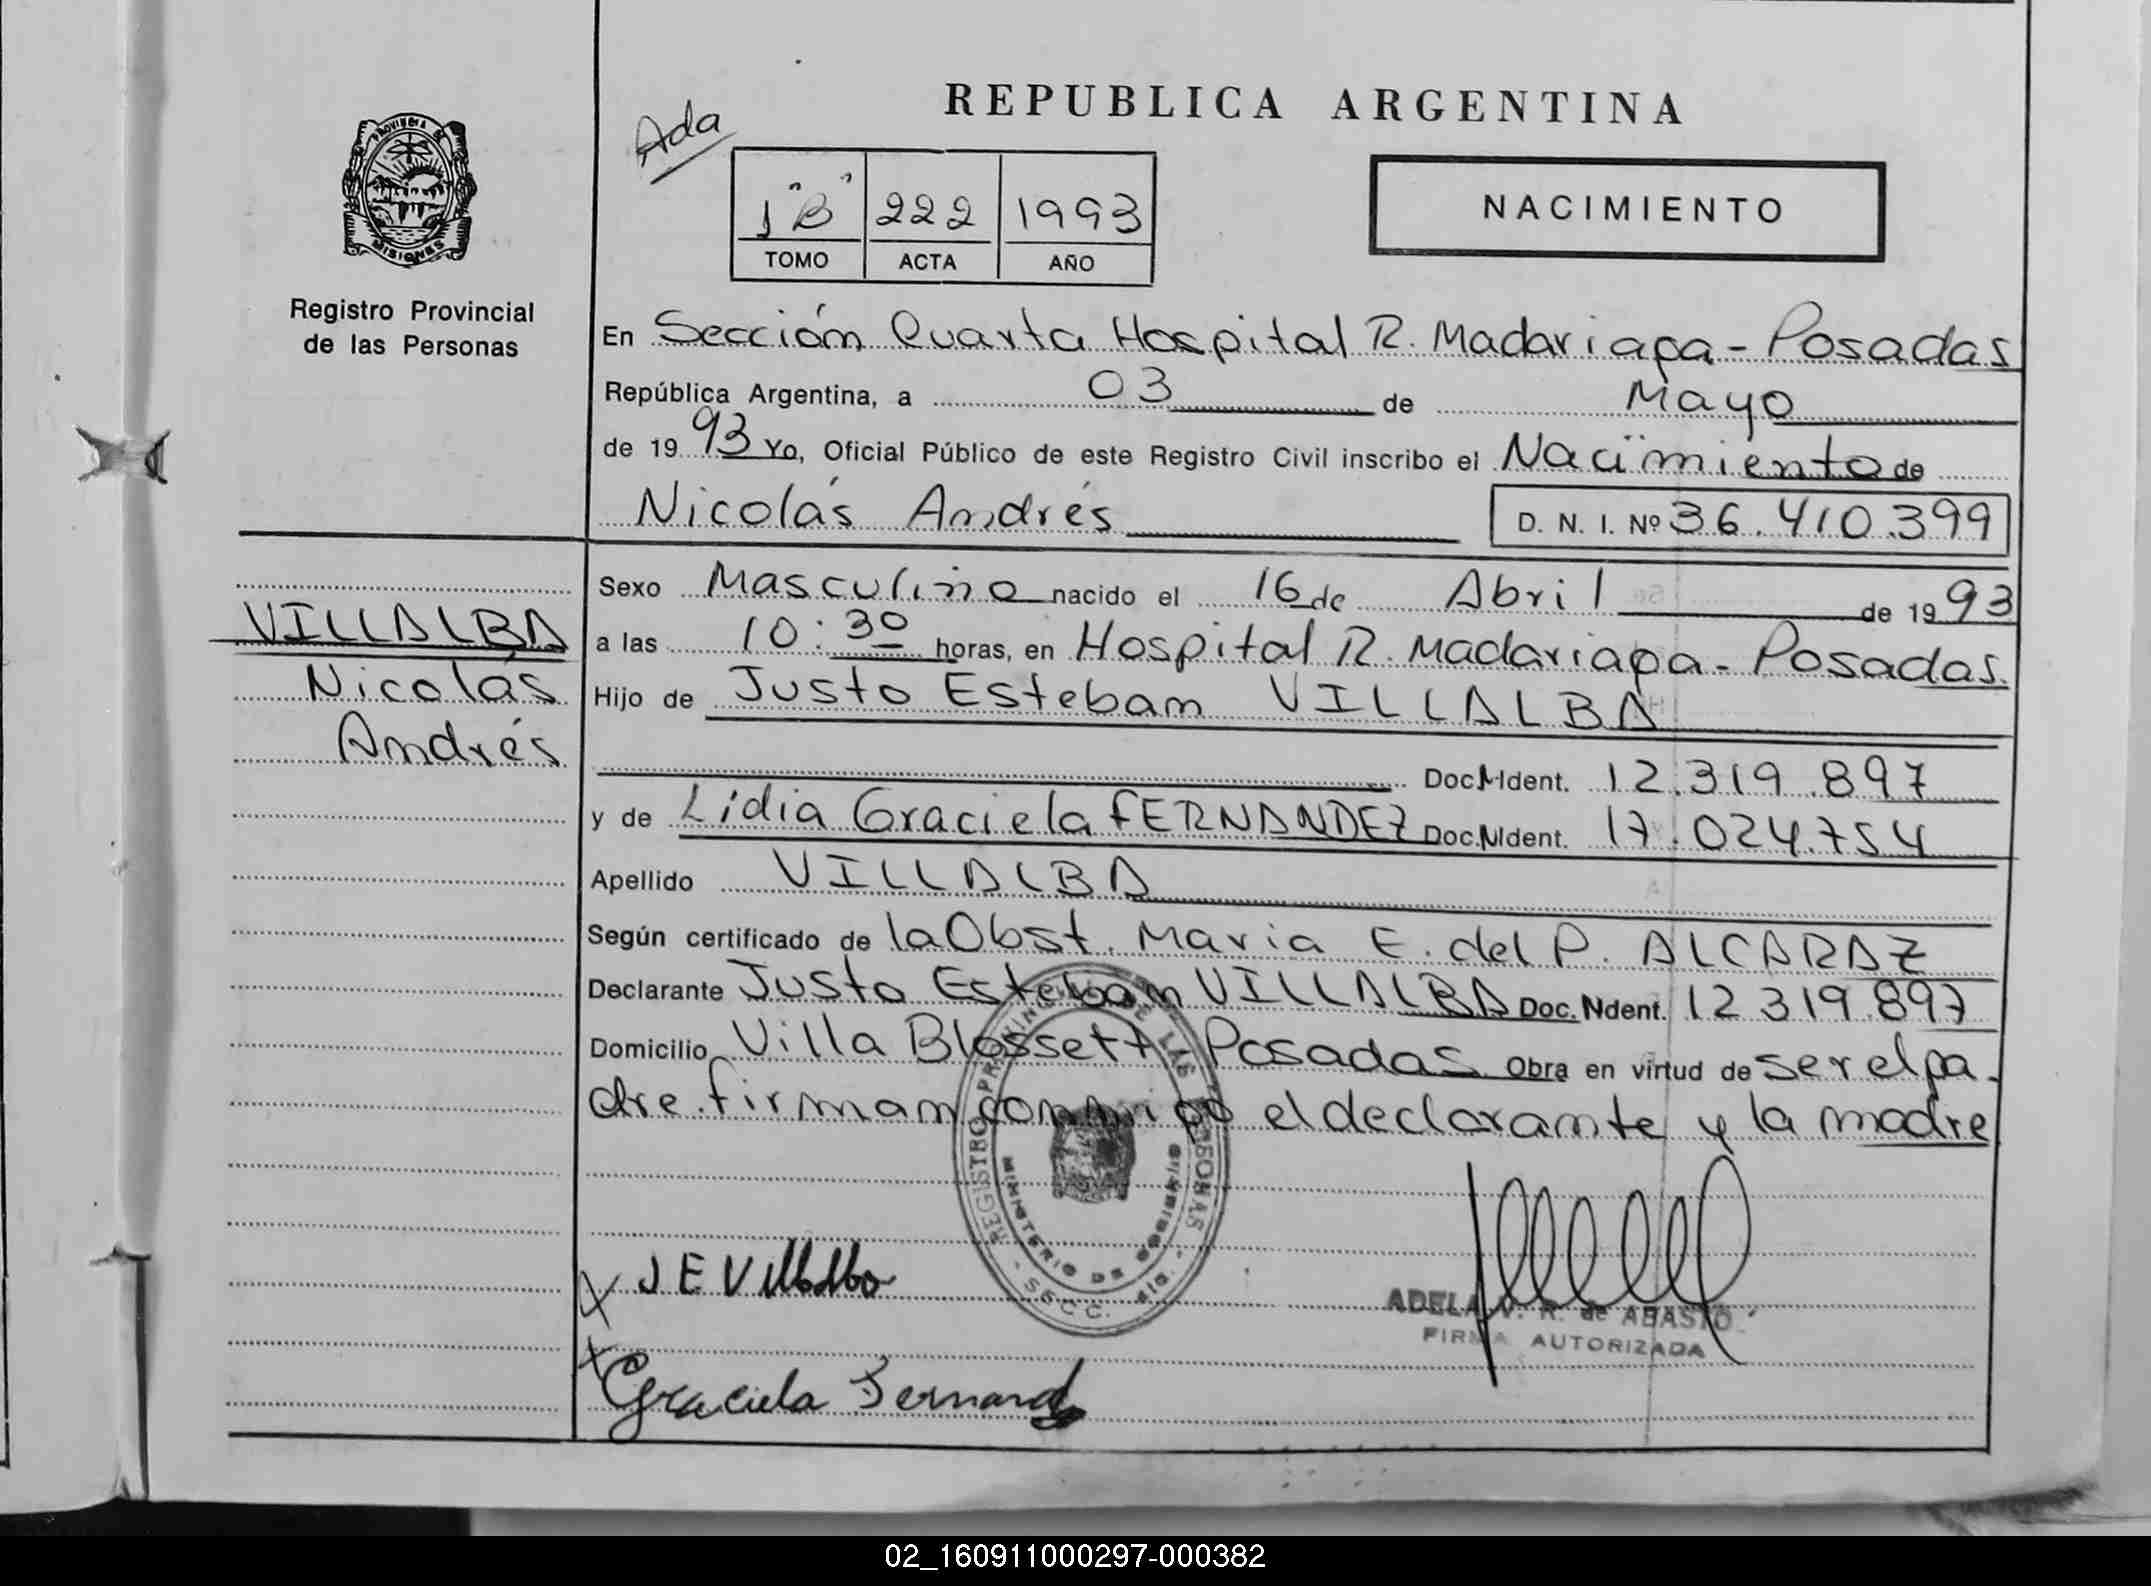 REPUBLICA ARGENTINA
Ada
1 "B" 222 1993
TOMO ACTA AÑO
NACIMIENTO
PROVINCIA DE
MISIONES
Registro Provincial
de las Personas
En Sección Quarta Hospital R. Madariaga - Posadas
República Argentina, a 03 de Mayo
de 1993 Yo, Oficial Público de este Registro Civil inscribo el Nacimiento de
Nicolás Andrés D. N. I. Nº 36.410.399
VILLALBA
Nicolás
Andrés
Sexo Masculino nacido el 16 de Abril de 1993
a las 10:30 horas, en Hospital R. Madariaga - Posadas.
Hijo de Justo Esteban VILLALBA
Doc. Ident. 12.319.897
y de Lidia Graciela FERNANDEZ Doc. Ident. 17.024.754
Apellido VILLALBA
Según certificado de la Obst. Maria E. del P. ALCARAZ
Declarante Justo Esteban VILLALBA Doc. Ident. 12 319.897
Domicilio Villa Blossett Posadas Obra en virtud de ser el pa-
dre. firman conmigo el declarante y la madre
REGISTRO PROVINCIAL DE LAS PERSONAS
MINISTERIO DE GOBIERNO
SECC. 4ta
J E Villalba
ADELA V. R. de ABASTO
FIRMA AUTORIZADA
Graciela Fernand
02_160911000297-000382